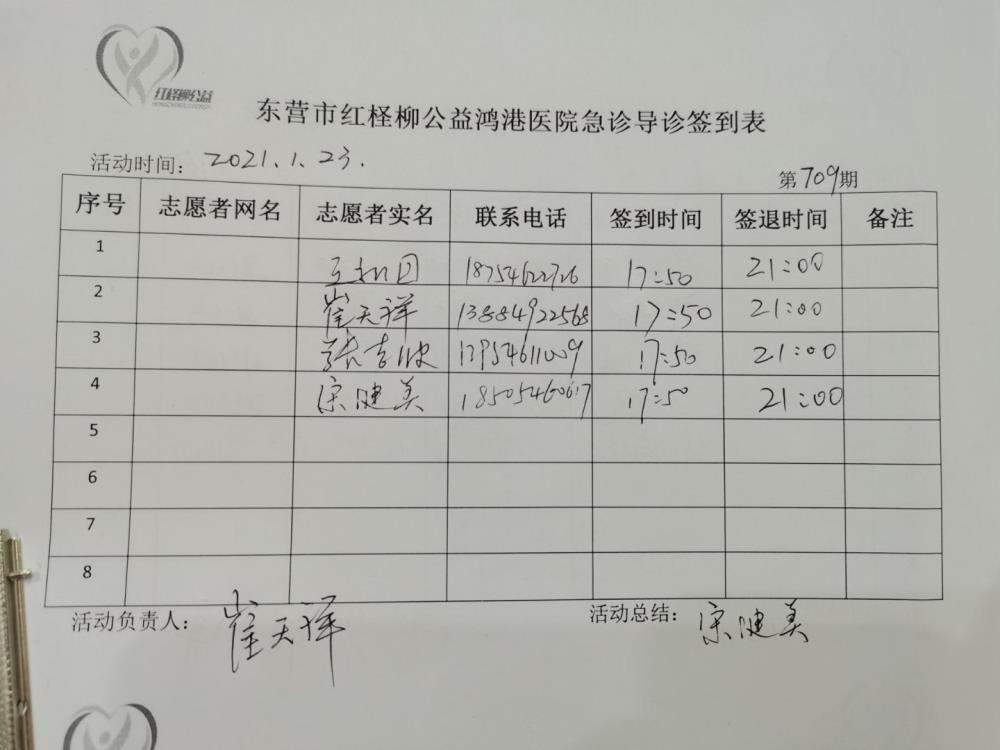 红柽柳公益
东营市红柽柳公益鸿港医院急诊导诊签到表
活动时间: 2021.1.23.
第709期
序号 志愿者网名 志愿者实名 联系电话 签到时间 签退时间 备注
1 18754622726 17:50 21:00
2 崔天祥 13884922568 17:50 21:00
3 张吉波 17:50 21:00
4 宋健美 18505460617 17:50 21:00
5
6
7
8
活动负责人: 崔天祥
活动总结: 宋健美